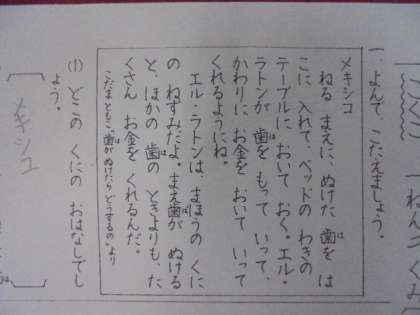 一ねんくみ
一、よんで、こたえましょう。
メキシコ
ねる まえに、ぬけた 歯を は
こに 入れて、ベッドの わきの
テーブルに おいて おく。エル・
ラトンが 歯を もって いって、
かわりに お金を おいて いって
くれるようにね。
エル・ラトンは、まほうの くに
の ねずみだよ。まえ歯が ぬける
と、ほかの 歯の ときよりも、た
くさん お金を くれるんだ。
こだまともこ「歯がぬけたらどうするの」より
(1) どこの くにの おはなしでし
ょう。
メキシコ